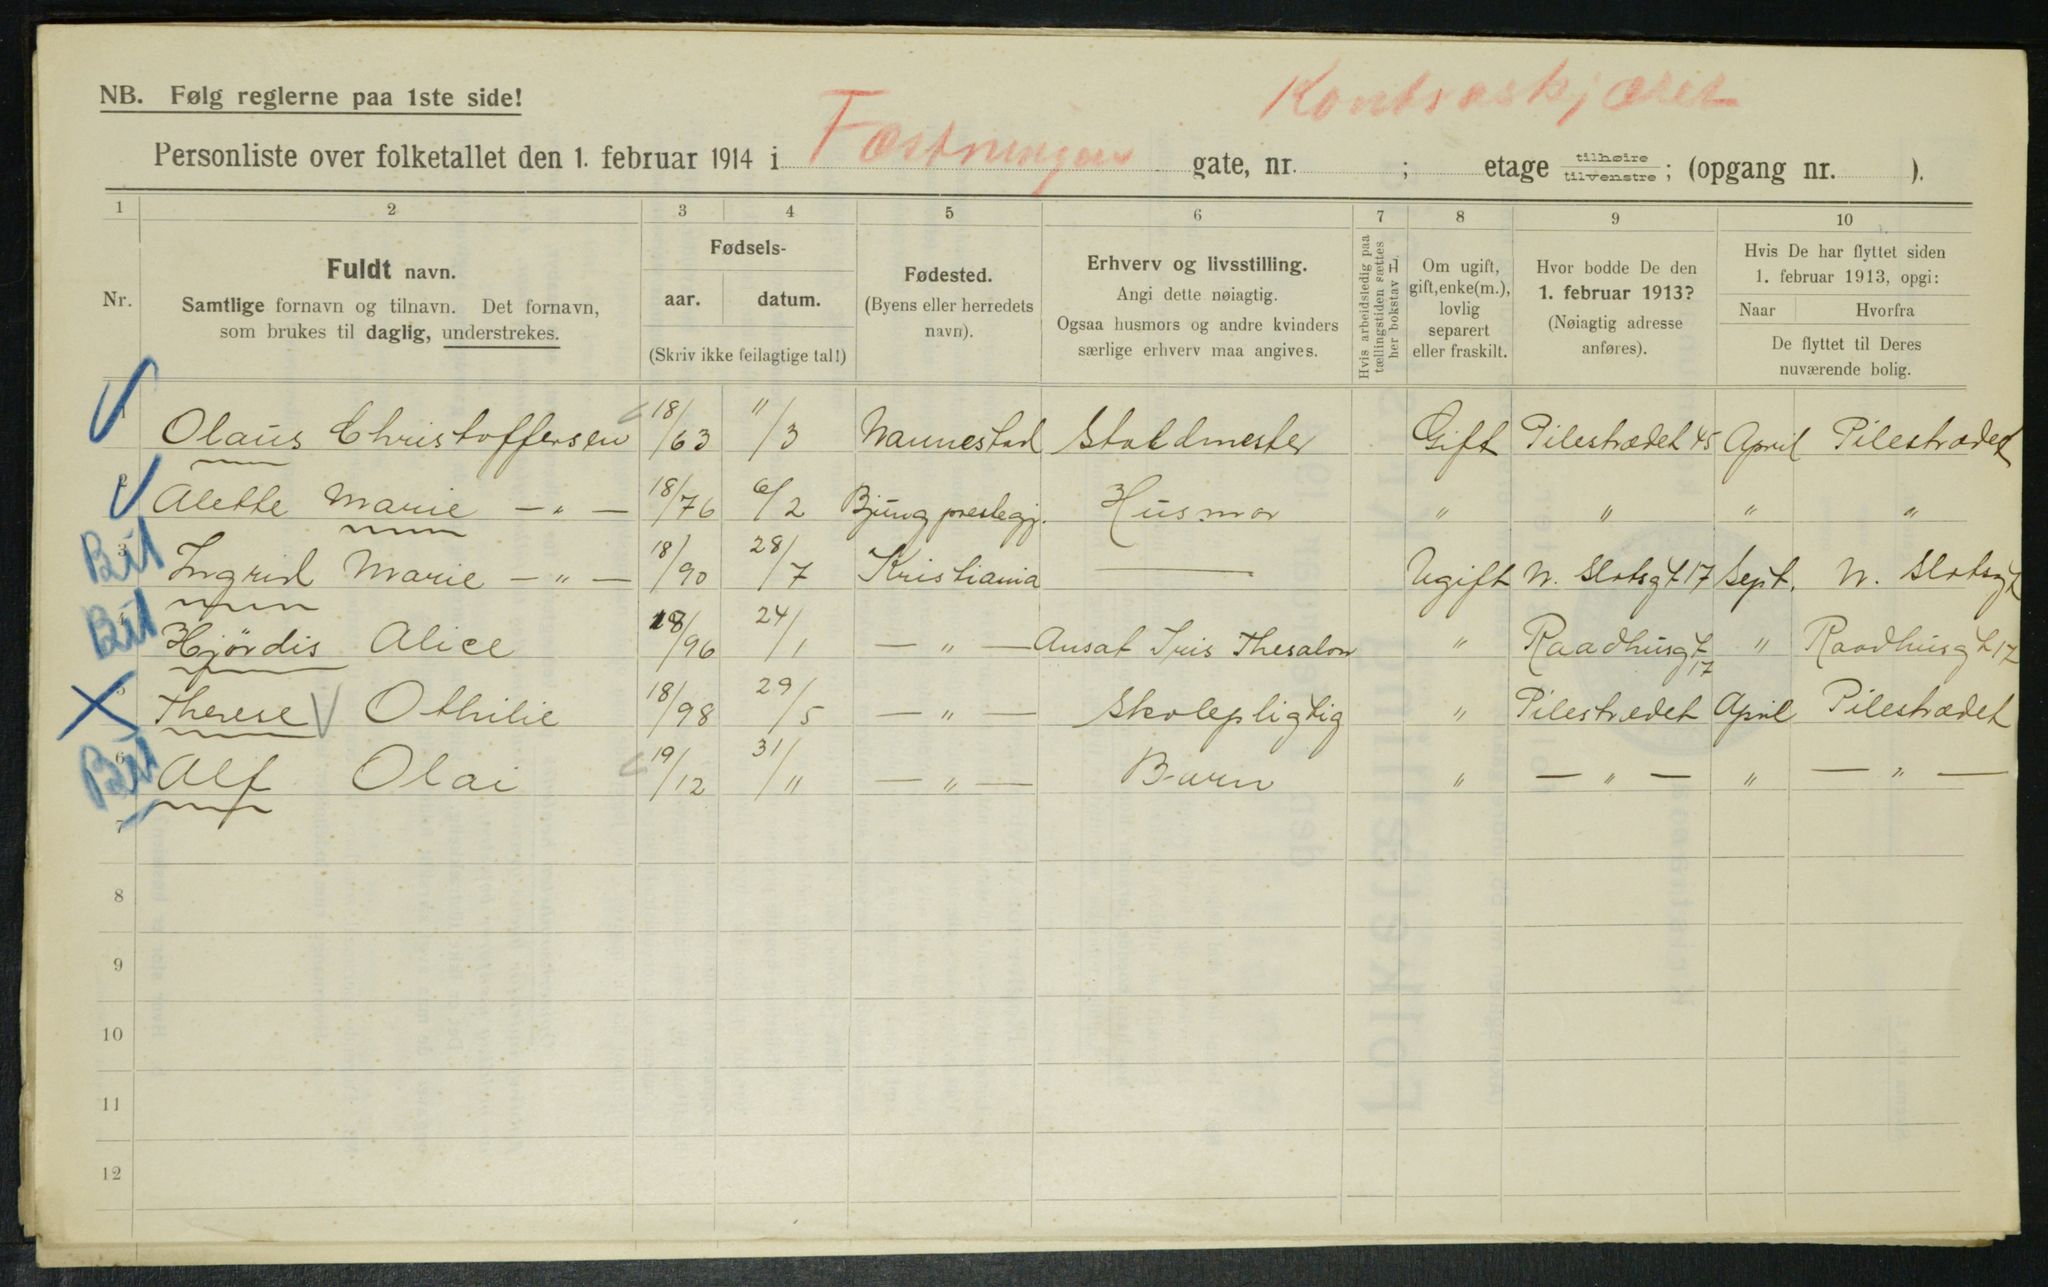 NB. Følg reglerne paa 1ste side!
Kontraskjæret
Personliste over folketallet den 1. februar 1914 i Fæstningen gate, nr. ; etage tilhøire tilvenstre ; (opgang nr. ).
1 2 3 4 5 6 7 8 9 10
Nr.
Fuldt navn.
Samtlige fornavn og tilnavn. Det fornavn,
som brukes til daglig, understrekes.
Fødsels-
aar. datum.
(Skriv ikke feilagtige tal!)
Fødested.
(Byens eller herredets
navn).
Erhverv og livsstilling.
Angi dette nøiagtig.
Ogsaa husmors og andre kvinders
særlige erhverv maa angives.
Hvis arbeidsledig paa
tællingstiden sættes
her bokstav L.
Om ugift,
gift, enke(m.),
lovlig
separert
eller fraskilt.
Hvor bodde De den
1. februar 1913?
(Nøiagtig adresse
anføres).
Hvis De har flyttet siden
1. februar 1913, opgi:
Naar Hvorfra
De flyttet til Deres
nuværende bolig.
1 Olaus Christoffersen 18/63 "/3 Nannestad Staldmester Gift Pilestrædet 45 April Pilestrædet
2 Alette Marie — " — 18/76 6/2 Bjung prestegj. Husmor " " " "
Bit 3 Ingrid Marie — " — 18/90 28/7 Kristiania — Ugift N. Slotsgt 17 Sept. N. Slotsgt
Bit 4 Hjördis Alice 18/96 24/1 — " — Ansat Iris Thesalon " Raadhusgt 17 " Raadhusgt 17
5 Therese Othilie 18/98 29/5 — " — Skolepligtig " Pilestrædet April Pilestrædet
Bit 6 Alf Olai 19/12 31/" — " — Barn " — " — " — " —
7
8
9
10
11
12